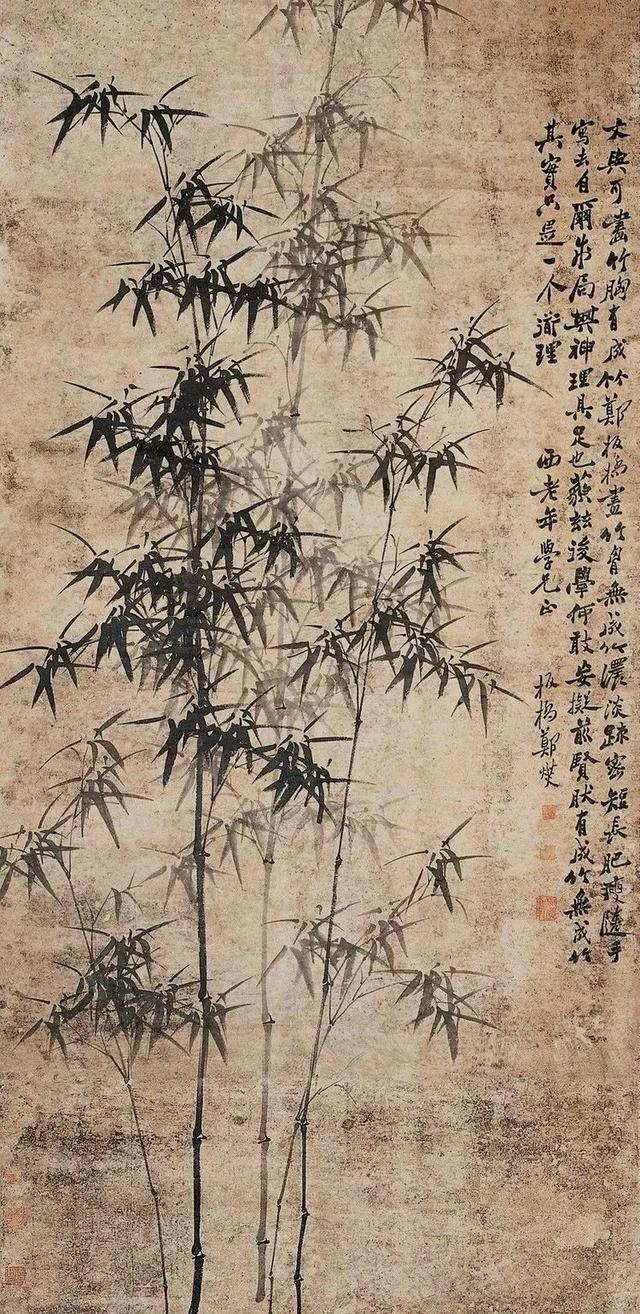 文與可畫竹胸有成竹鄭板橋畫竹胸無成竹濃淡疎密短長肥瘦隨手
寫去自爾成局其神理具足也藐茲後學何敢妄擬前賢肰有成竹無成竹
其實只是一个衜理
西老年學兄正
板橋鄭燮